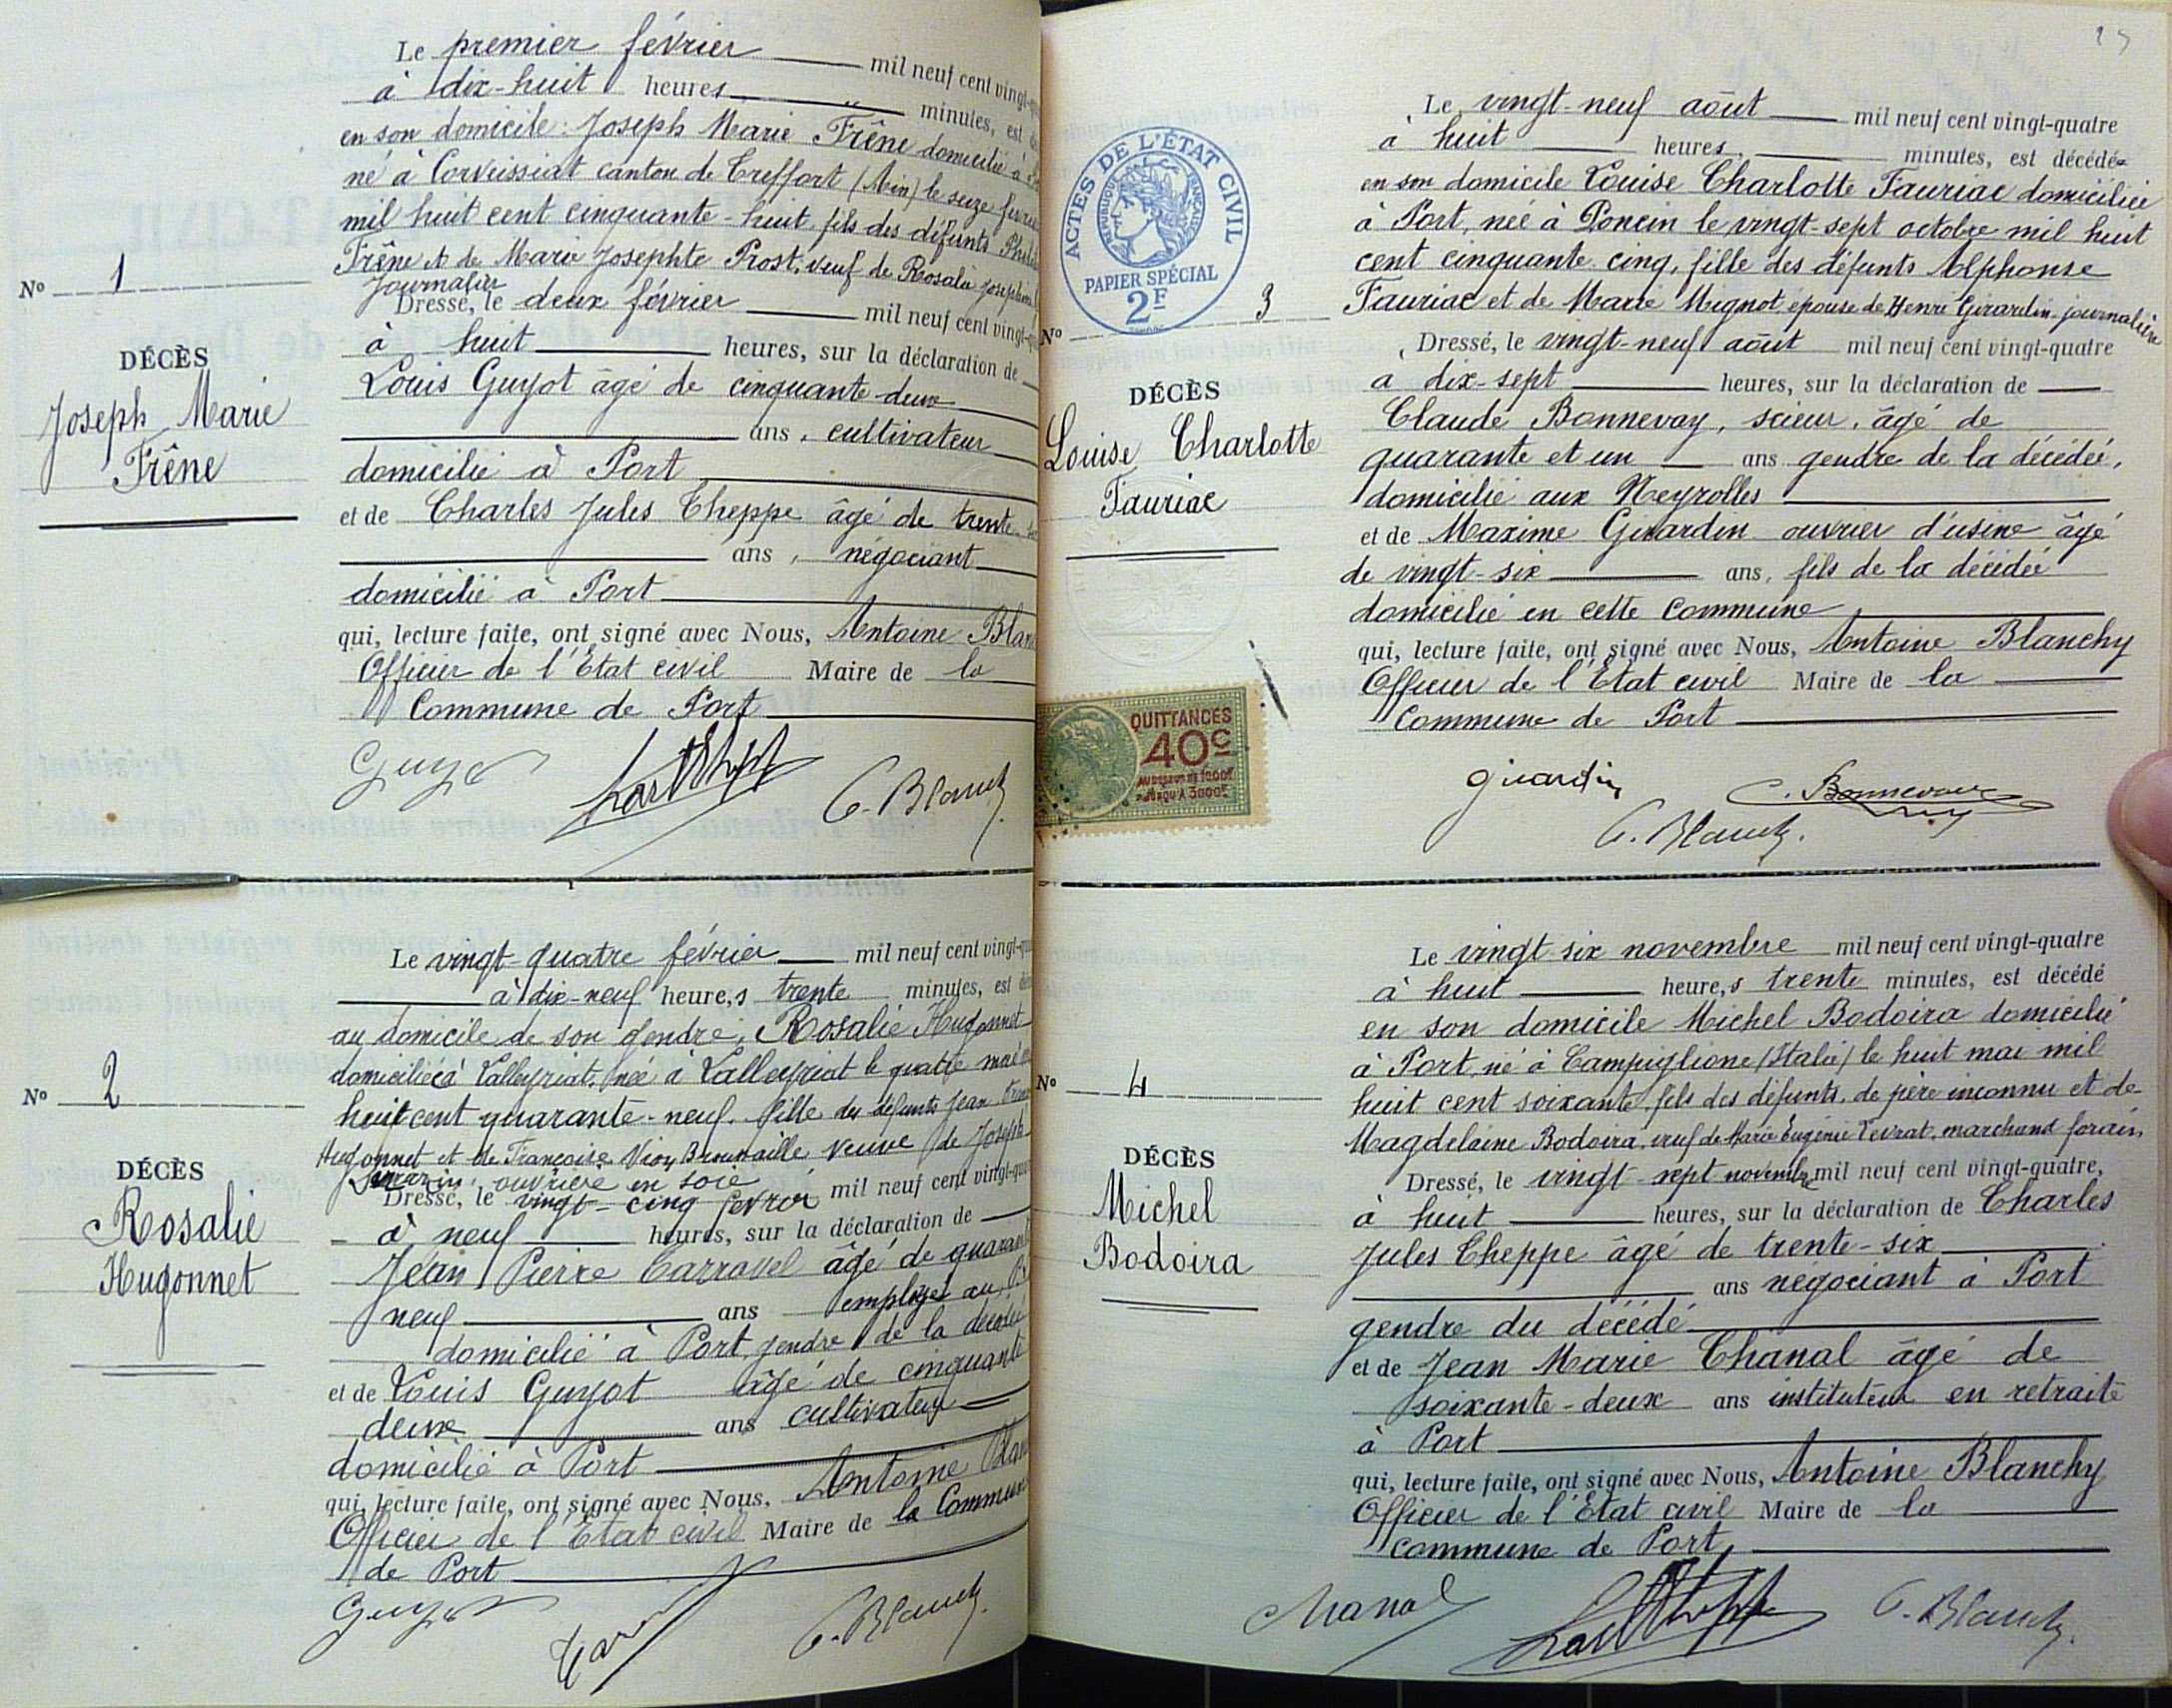 Le premier février mil neuf cent vingt-
à dix-huit heures, minutes, est
en son domicile : Joseph Marie Frêne domicilié à
né à Corveissiat canton de Treffort (Ain) le seize
mil huit cent cinquante-huit, fils des défunts
Frêne et de Marie Josephte Prost, veuf de Rosalie
journalier
Dressé, le deux février mil neuf cent vingt-
à huit heures, sur la déclaration de
Louis Guyot âgé de cinquante-deux
ans, cultivateur
domicilié à Port
et de Charles Jules Theppe âgé de trente-
ans, négociant
domicilié à Port
qui, lecture faite, ont signé avec Nous, Antoine
Officier de l'État civil Maire de la
Commune de Port
No 1
DÉCÈS
Joseph Marie
Frêne
Guyot
Le vingt-quatre février mil neuf cent vingt-
à dix-neuf heures trente minutes, est
au domicile de son gendre, Rosalie Hugonnet
domiciliée à Lalleyriat, née à Lalleyriat le quatre mai
huit cent quarante-neuf. fille des défunts Jean
Hugonnet et de Françoise veuve de Joseph
ouvrière en soie
Dressé, le vingt-cinq février mil neuf cent vingt-
à neuf heures, sur la déclaration de
Jean Pierre Carravel âgé de
neuf ans employé au
domicilié à Port, gendre de la
et de Louis Guyot âgé de cinquante
deux ans cultivateur
domicilié à Port
qui, lecture faite, ont signé avec Nous, Antoine
Officier de l'État civil Maire de la
de Port
No 2
DÉCÈS
Rosalie
Hugonnet
Guyot
Le vingt-neuf août mil neuf cent vingt-quatre
à huit heures, minutes, est décédée
en son domicile Louise Charlotte Fauriac domiciliée
à Port, née à Poncin le vingt-sept octobre mil huit
cent cinquante cinq, fille des défunts Alphonse
Fauriac et de Marie Mignot épouse de Henri Girardin journalière
Dressé, le vingt-neuf août mil neuf cent vingt-quatre
à dix-sept heures, sur la déclaration de
Claude Bonnevay, scieur, âgé de
quarante et un ans gendre de la décédée,
domicilié aux Neyrolles
et de Maxime Girardin ouvrier d'usine âgé
de vingt-six ans, fils de la décédée
domicilié en cette commune
qui, lecture faite, ont signé avec Nous, Antoine Blanchy
Officier de l'État civil Maire de la
Commune de Port
ACTES DE L'ÉTAT CIVIL
RÉPUBLIQUE FRANÇAISE
PAPIER SPÉCIAL
2F
No 3
DÉCÈS
Louise Charlotte
Fauriac
QUITTANCES
40c
girardin C. Bonnevay
Le vingt-six novembre mil neuf cent vingt-quatre
à huit heures trente minutes, est décédé
en son domicile Michel Bodoira domicilié
à Port, né à Campiglione (Italie) le huit mai mil
huit cent soixante, fils des défunts, de père inconnu et de
Magdelaine Bodoira, veuf de Marie Eugénie Tevrat, marchand forain
Dressé, le vingt-sept novembre mil neuf cent vingt-quatre,
à huit heures, sur la déclaration de Charles
Jules Theppe âgé de trente-six
ans négociant à Port
gendre du décédé
et de Jean Marie Chanal âgé de
soixante-deux ans instituteur en retraite
à Port
qui, lecture faite, ont signé avec Nous, Antoine Blanchy
Officier de l'État civil Maire de la
commune de Port
No 4
DÉCÈS
Michel
Bodoira
Chanal